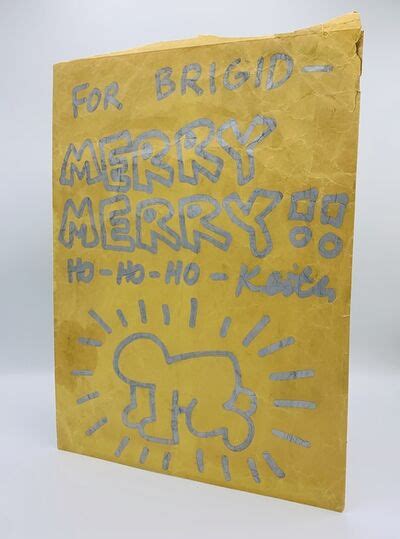 FOR BRIGID—
MERRY
MERRY!!
HO-HO-HO- Keith